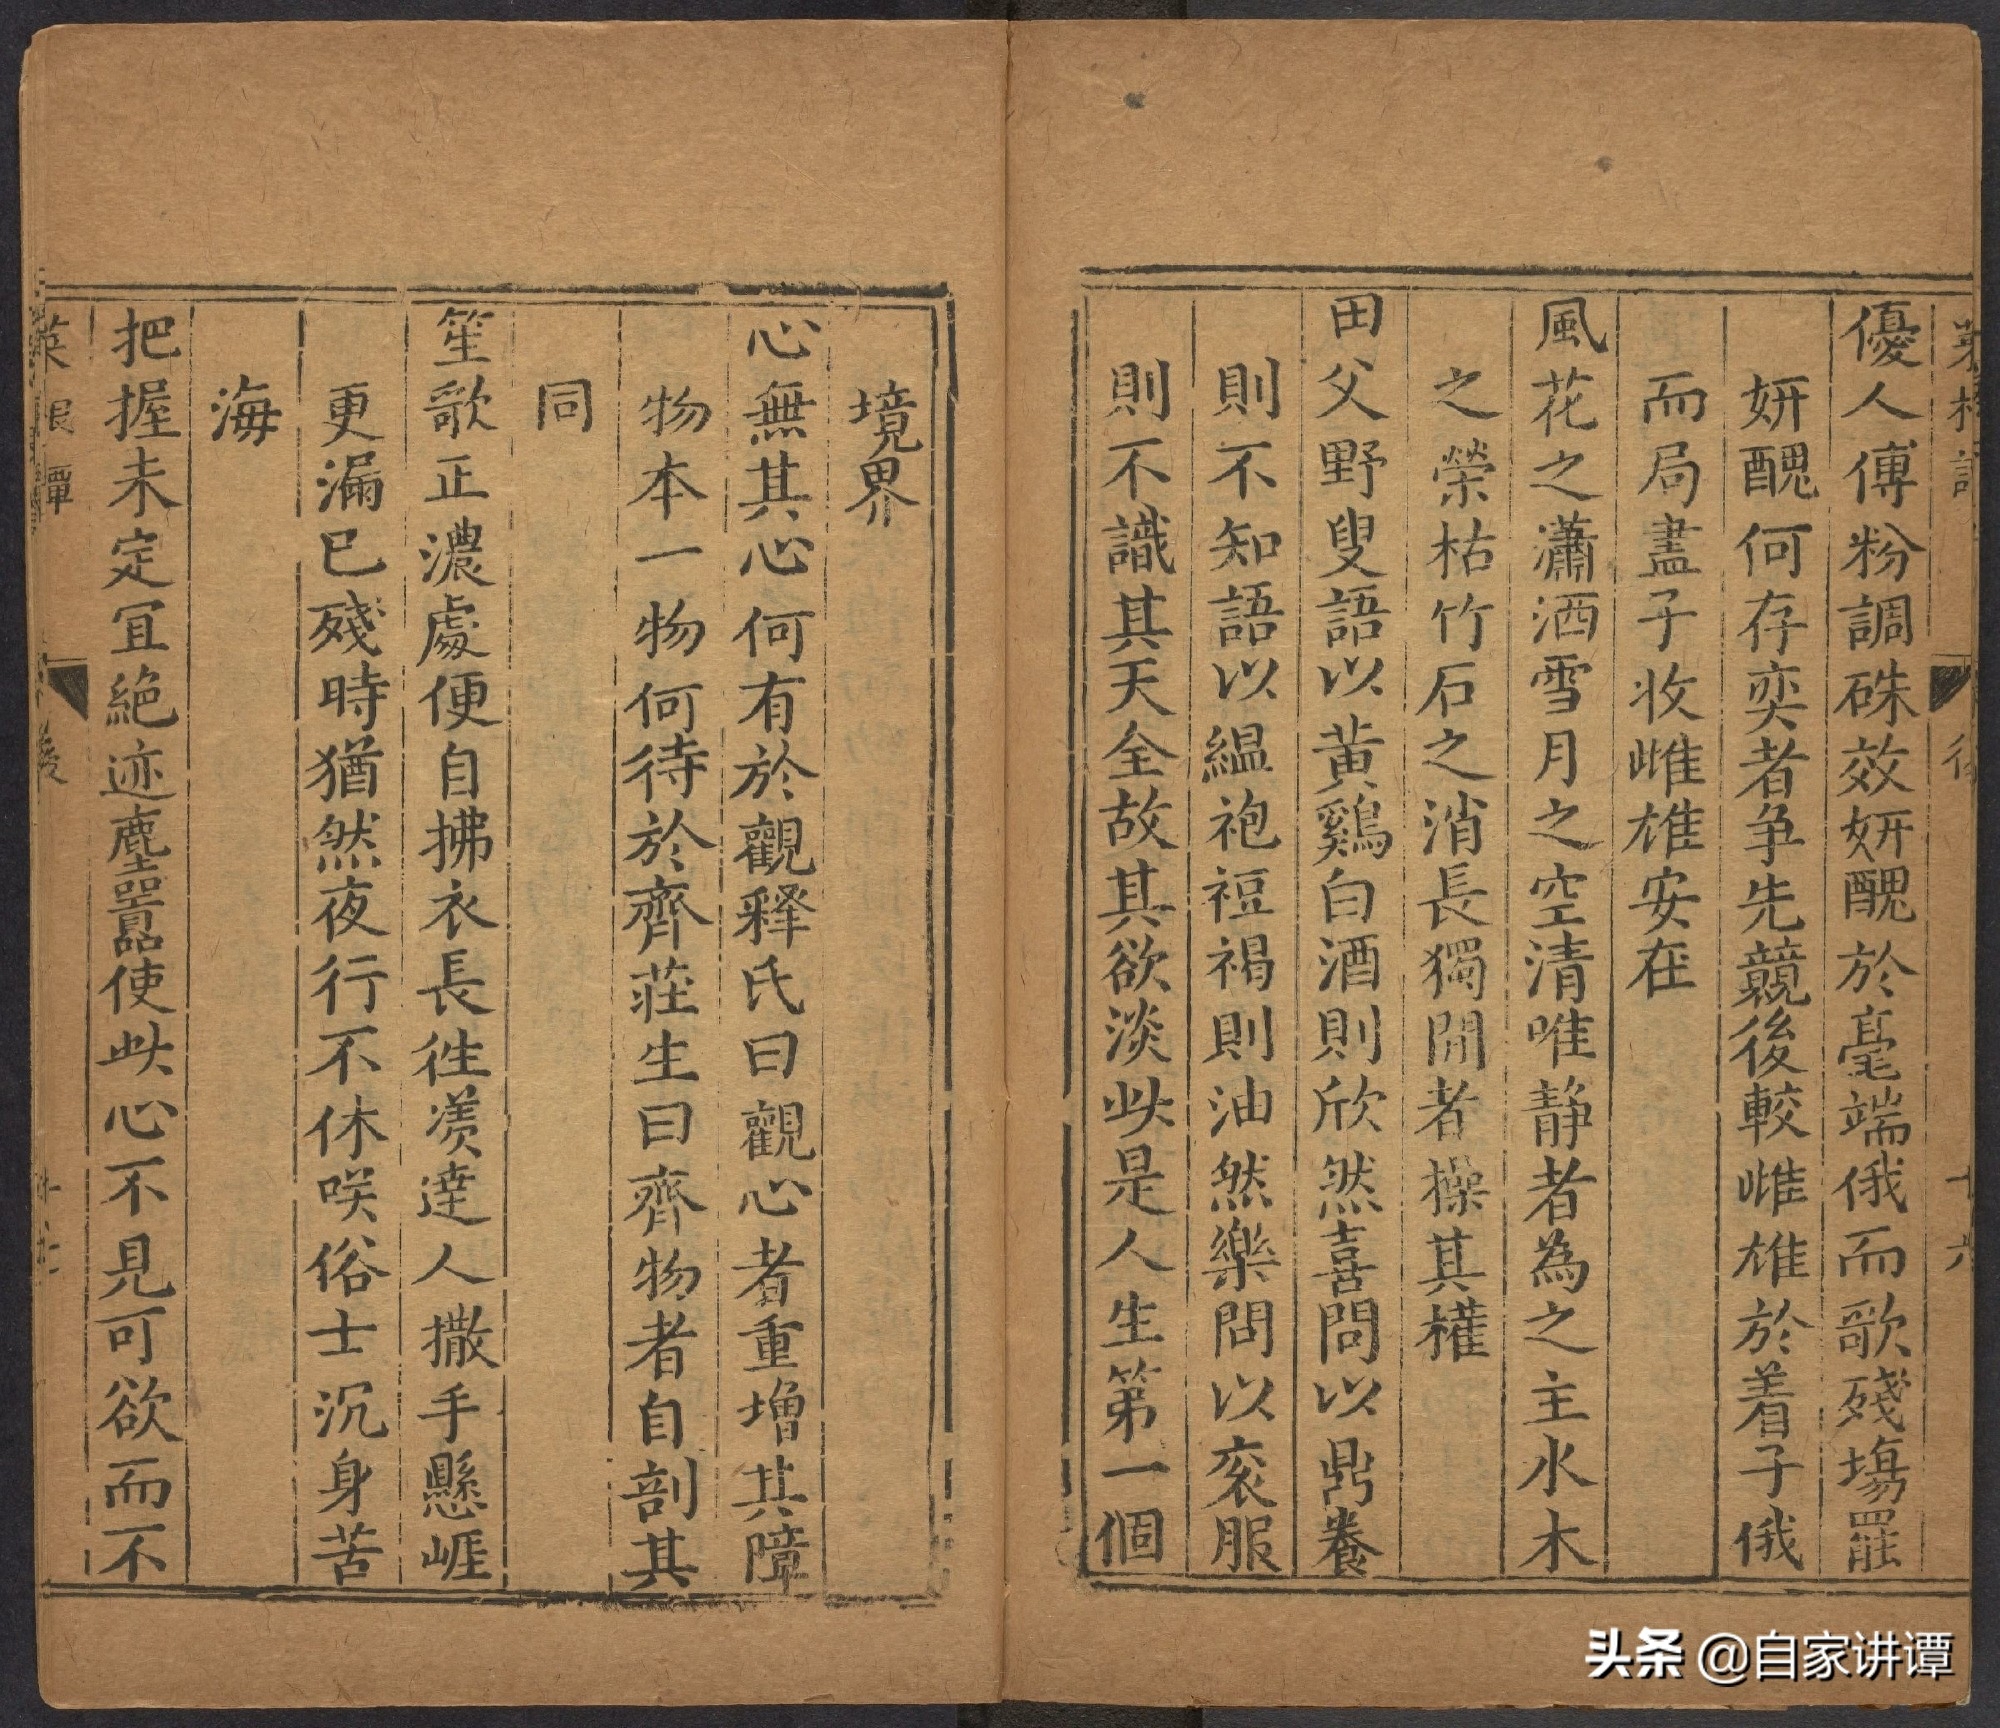 優人傅粉調硃效妍醜於毫端俄而歌殘場罷
妍醜何存奕者争先競後較雌雄於着子俄
而局盡子收雌雄安在
風花之瀟洒雪月之空清唯静者為之主水木
之榮枯竹石之消長獨閒者操其權
田父野叟語以黄鷄白酒則欣然喜問以鼎養
則不知語以緼袍裋褐則油然樂問以衮服
則不識其天全故其欲淡此是人生第一個
境界
心無其心何有於觀釋氏曰觀心者重增其障
物本一物何待於齊莊生曰齊物者自剖其
同
笙歌正濃處便自拂衣長徃羡達人撒手懸崖
更漏已殘時猶然夜行不休咲俗士沉身苦
海
把握未定宜絶迹塵囂使此心不見可欲而不
菜根譚
後
头条 @自家讲谭